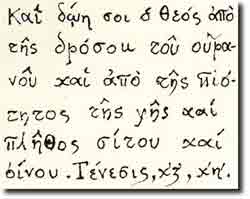 Καὶ δῴη σοι ὁ Θεὸς ἀπὸ
τῆς δρόσου τοῦ οὐρα-
νοῦ καὶ ἀπὸ τῆς πιό-
τητος τῆς γῆς καὶ
πλῆθος σίτου καὶ
οἴνου. Γένεσις, κζ΄, κη΄.